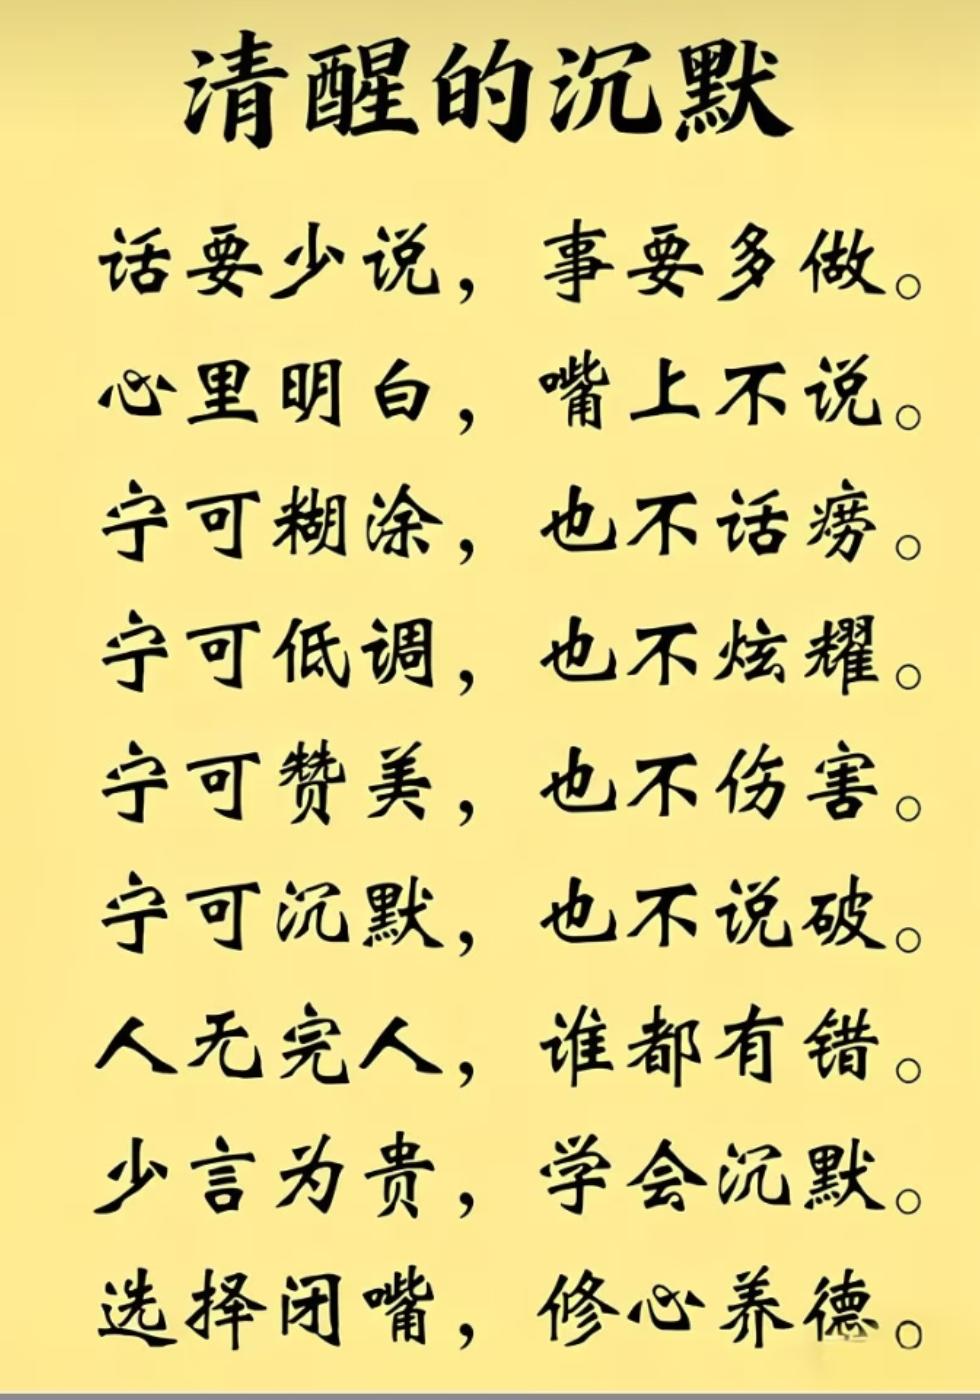 清醒的沉默
话要少说，事要多做。
心里明白，嘴上不说。
宁可糊涂，也不话痨。
宁可低调，也不炫耀。
宁可赞美，也不伤害。
宁可沉默，也不说破。
人无完人，谁都有错。
少言为贵，学会沉默。
选择闭嘴，修心养德。